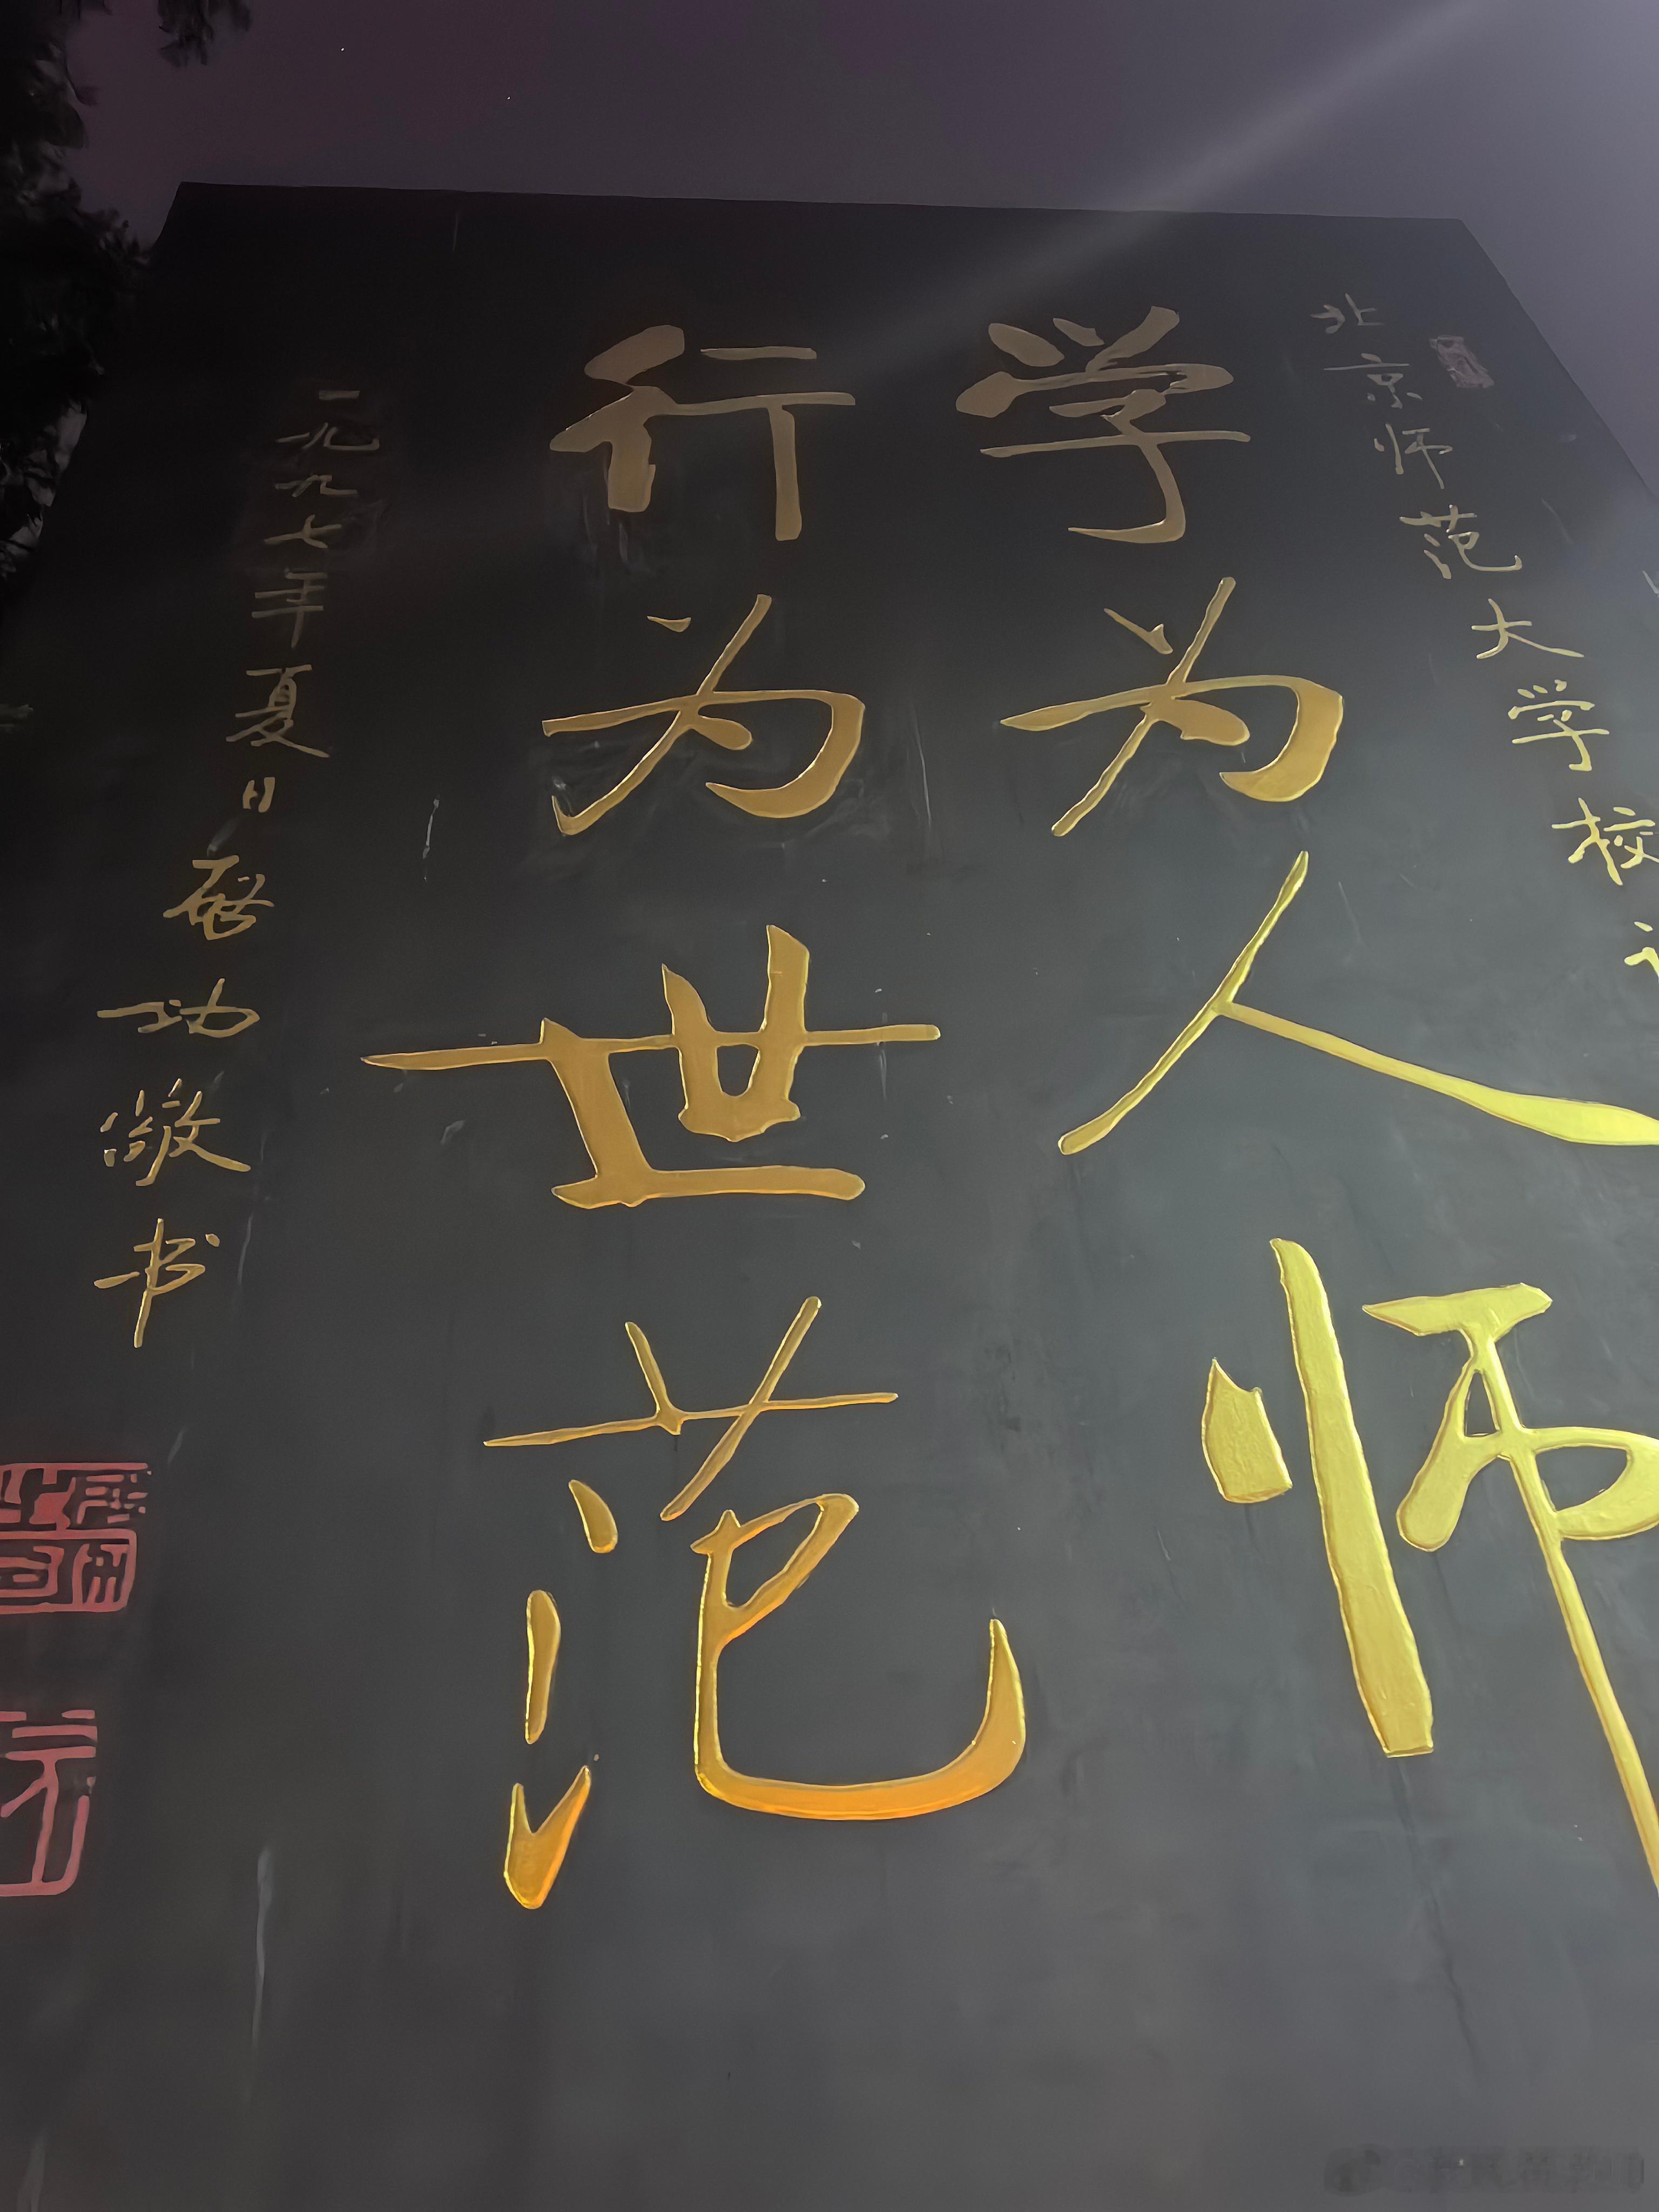 北京师范大学校
学为人师
行为世范
一九九七年夏日启功敬书